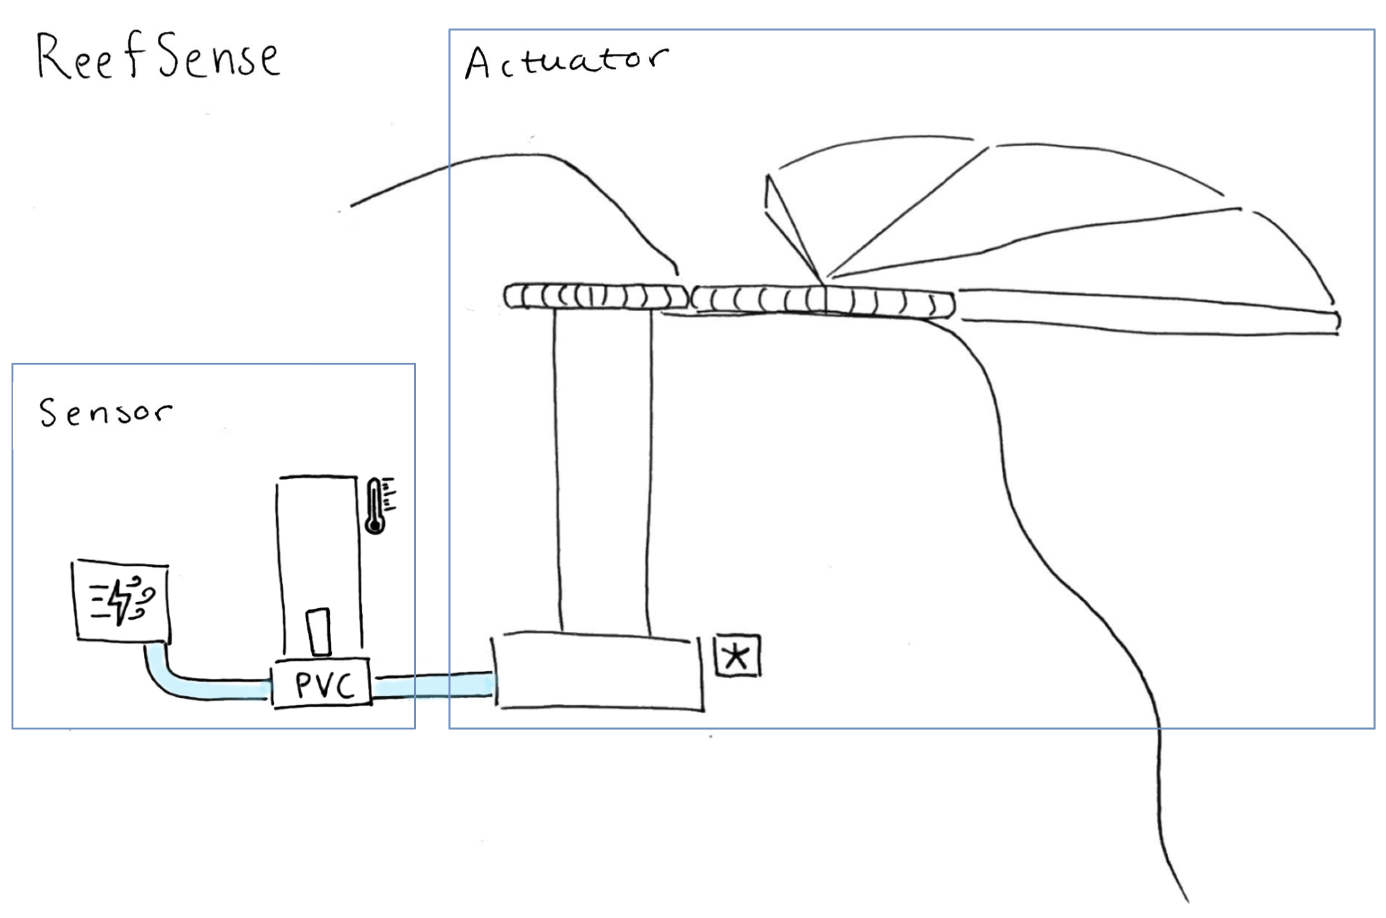 ReefSense
Actuator
Sensor
PVC
*